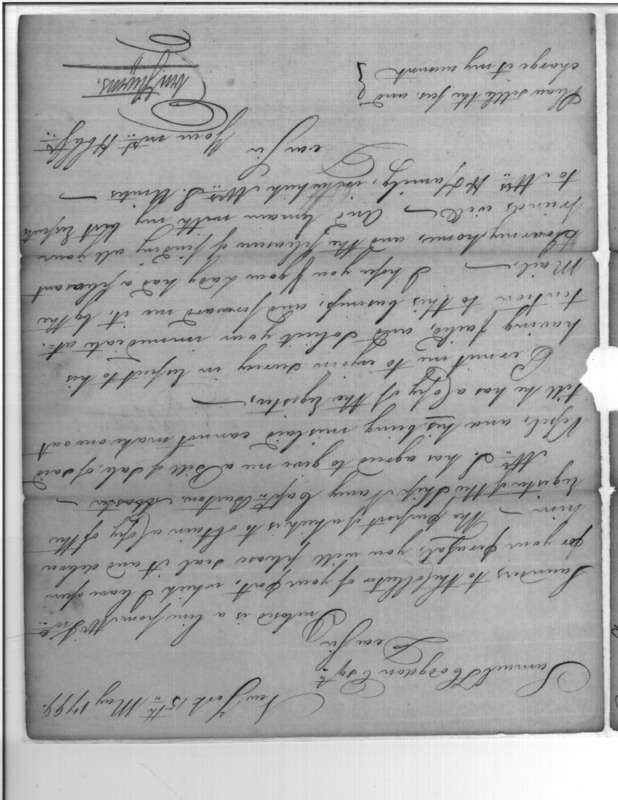 New York 15th May 1799.
Samuel Hodgdon Esqr.
Dear Sir
Inclosed is a line from Mr Inl:
Saunders to the Collector of your port, which I leave open
for your perusal, you will please seal it and deliver
him — The purport of which is to obtain a Copy of the
Register of the Ship Nancy Capt: Burton Master —
Mr: S. has agreed to give me a Bill of Sale of said
Vessel, and his being mislaid cannot make one out
till he has a Copy of the Register, —
Permit me to enjoin secrecy in respect to his
having failed, and solicit your immediate at-
tention to this business, and forward me it, by the
Mail, — I hope you & your Lady had a pleasant
Tour home, and the pleasure of finding all your
friends well — And remain with my best respects
to Mrs: H & family, in which Mrs: S. Unites —
Dear Sir
Your mst: Hble Ser:
Please settle the fees and
charge it my account